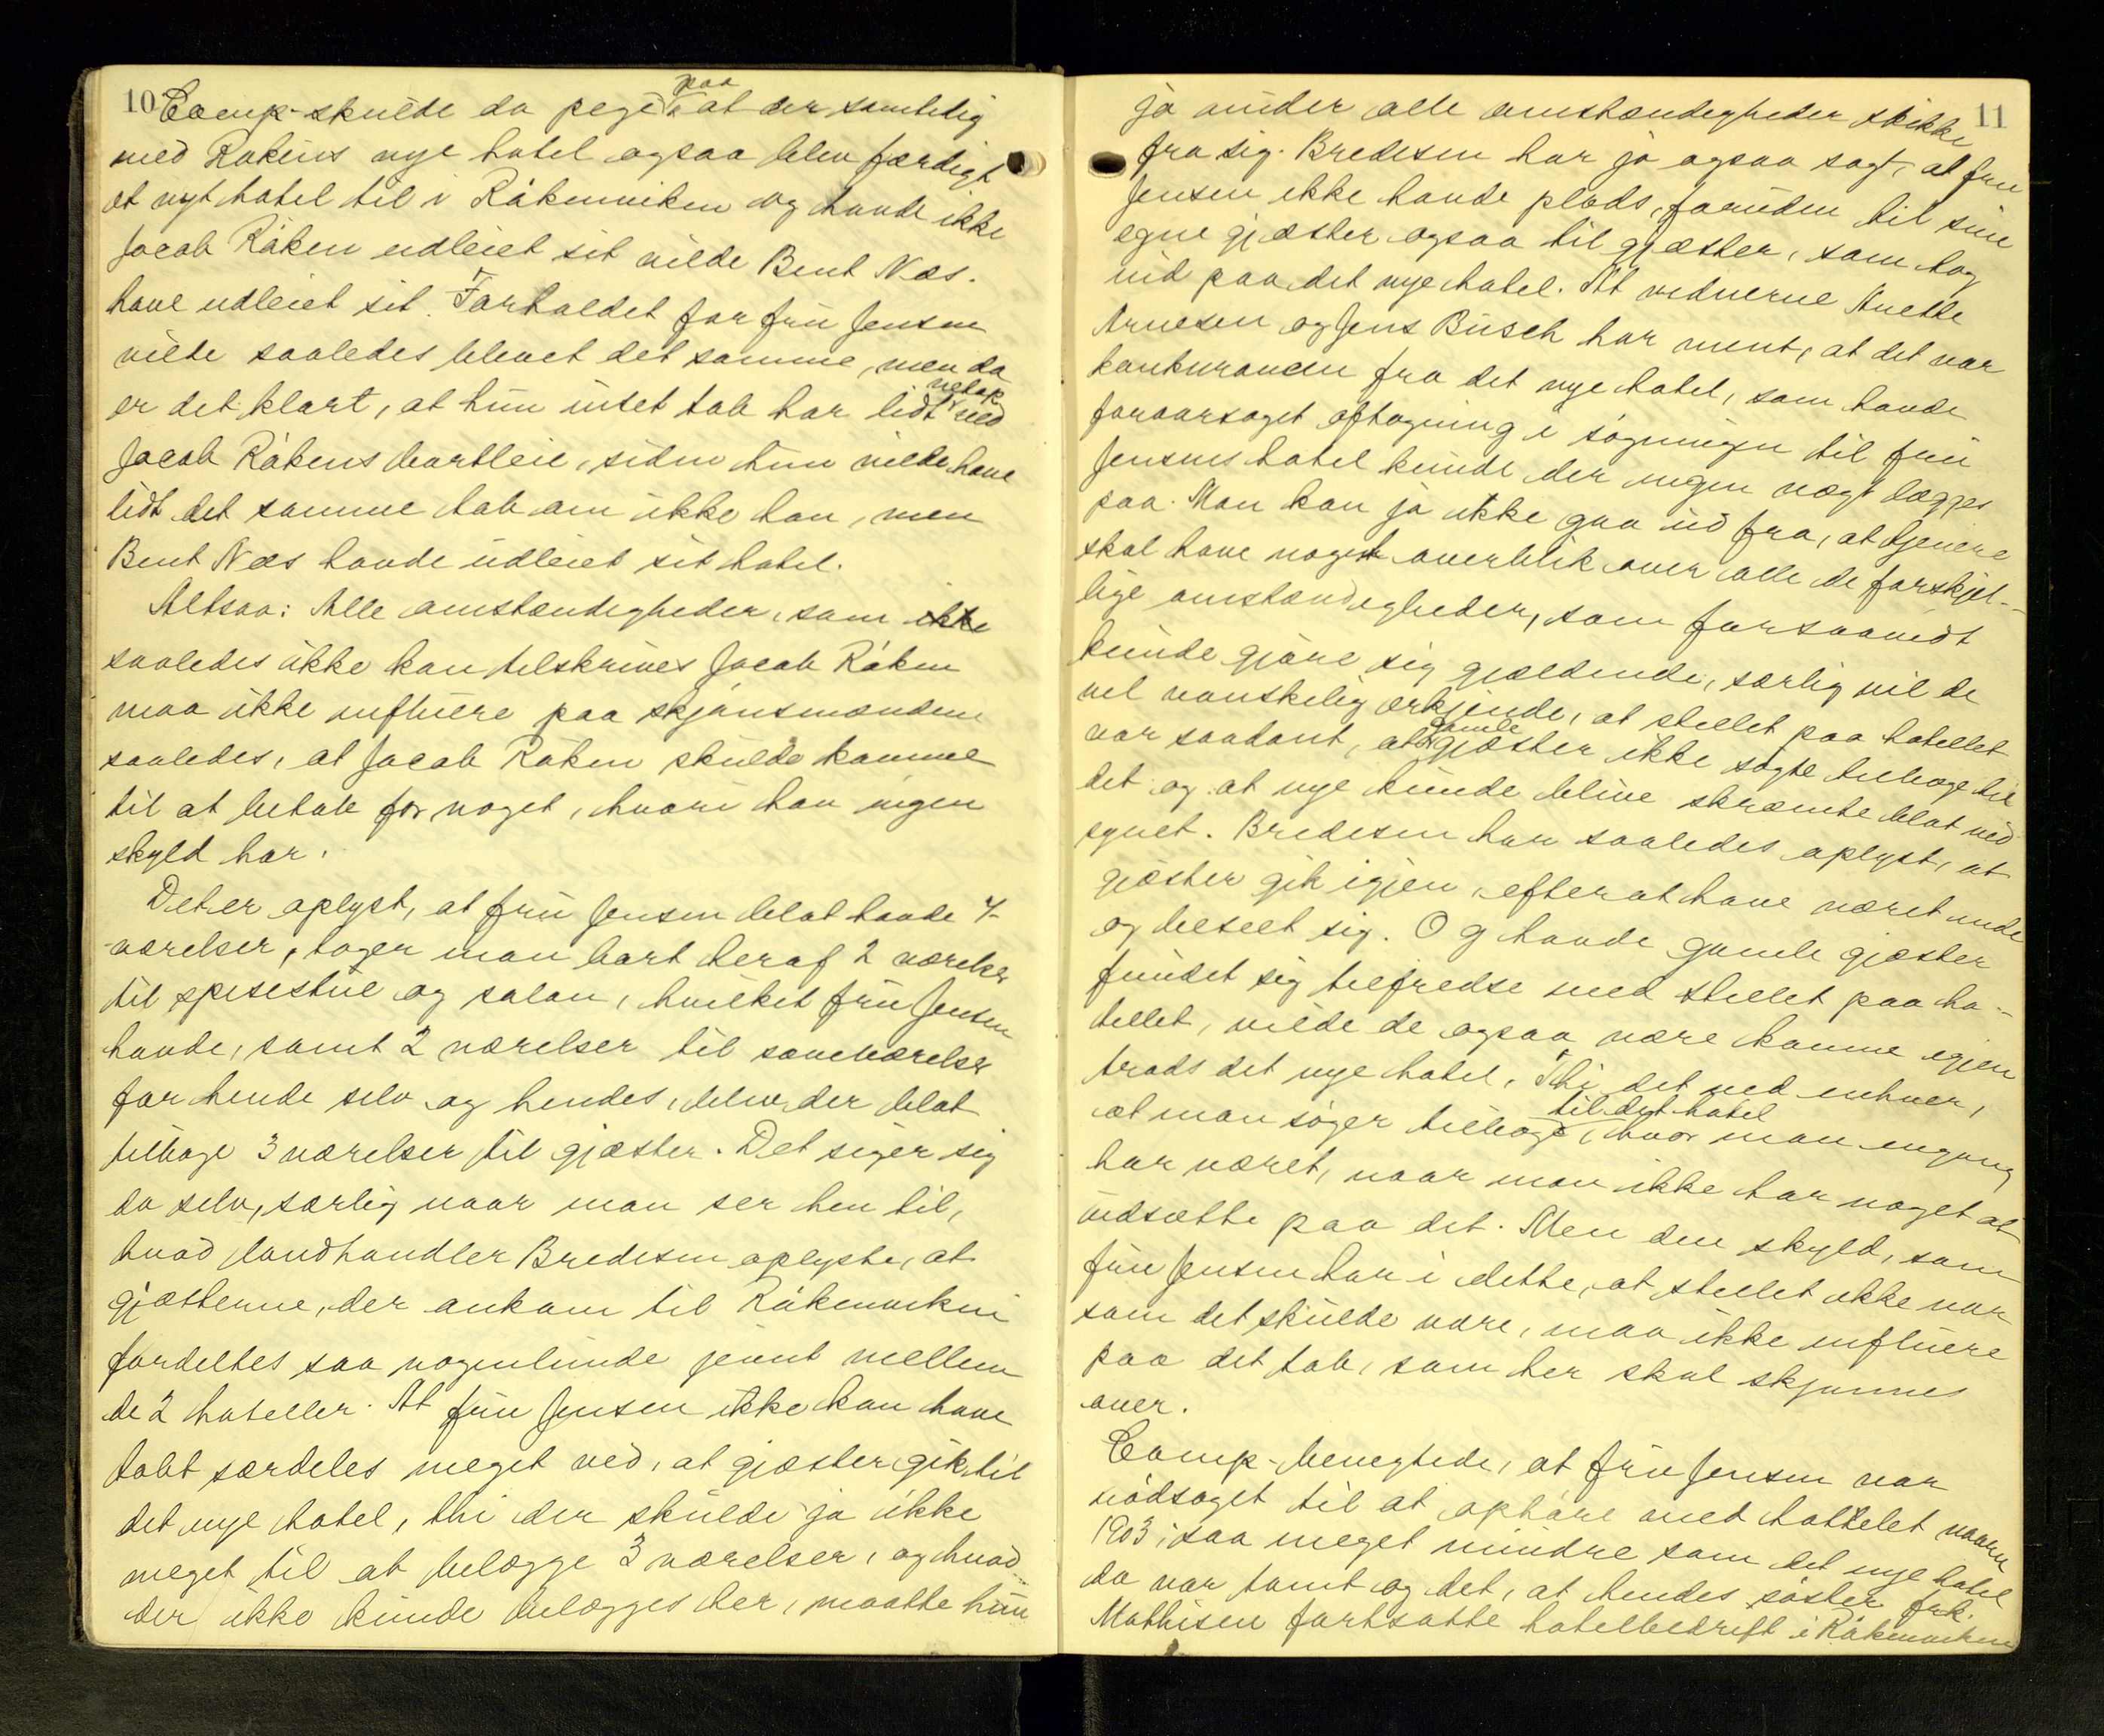 10
Comp. skulde da pege paa at der samtidig
med Råkens nye hotel ogsaa blev færdigt
et nyt hotel til i Råkenviken og havde ikke
Jacob Råken udleiet sit vilde Bent Næs.
have udleiet sit. Forholdet for fru Jensen
vilde saaledes blevet det samme, men da
er det klart, at hun intet tab har lidt netop ved
Jacob Råkens bortleie, siden hun vilde have
lidt det samme tab om ikke han, men
Bent Næs havde udleiet sit hotel.
Altsaa: Alle omstændigheder, som ikke
saaledes ikke kan tilskrives Jacob Råken
maa ikke influere paa skjønsmændene
saaledes, at Jacob Råken skulde komme
til at betale for noget, hvori han ingen
skyld har.
Det er oplyst, at fru Jensen blot havde 7
værelser, tager man bort heraf 2 værelser
til spisestue og salon, hvilket fru Jensen
havde, samt 2 værelser til soveværelser
for hende selv og hendes, blev der blot
tilbage 3 værelser til gjæster. Det siger sig
da selv, særlig naar man ser hen til,
hvad landhandler Bredesen oplyste, at
gjæsterne, der ankom til Råkenviken
fordeltes saa nogenlunde jevnt mellem
de 2 hoteller. At fru Jensen ikke kan have
tabt særdeles meget ved, at gjæster gik til
det nye hotel, thi der skulde jo ikke
meget til at belægge 3 værelser, og hvad
der ikke kunde belægges her, maatte hun
11
jo under alle omstændigheder skikke
fra sig. Bredesen har jo ogsaa sagt, at fru
Jensen ikke havde plads, foruden til sine
egne gjæster ogsaa til gjæster, som tog
ind paa det nye hotel. At vidnerne Anette
Arnesen og Jens Busch har ment, at det var
konkurancen fra det nye hotel, som havde
foraarsaget aftagning i søgningen til fru
Jensens hotel kunde der ingen vægt lægges
paa. Man kan jo ikke gaa ud fra, at tjenere
skal have noget overblik over alle de forskjel-
lige omstændigheder, som forsaavidt
kunde gjøre sig gjældende, særlig vil de
vel vanskelig erkjende, at stellet paa hotellet
var saadant, at gamle gjæster ikke søgte tilbage til
det og at nye kunde blive skræmte blot ved
synet. Bredesen har saaledes oplyst, at
gjæster gik igjen, efter at have været inde
og beseet sig. Og havde gamle gjæster
fundet sig tilfredse med stellet paa ho-
tellet, vilde de ogsaa være komne igjen
trods det nye hotel, Thi det ved enhver,
at man søger tilbage til det hotel, hvor man engang
har været, naar man ikke har noget at
udsætte paa det. Men den skyld, som
fru Jensen har i dette, at stellet ikke var
som det skulde være, maa ikke influere
paa det tab, som her skal skjønnes
over.
Comp. benegtede, at fru Jensen var
nødsaget til at ophøre med hottelet vaaren
1903, saa meget mindre som det nye hotel
da var tomt og det, at hendes søster frk.
Mathisen fortsatte hotelbedrift i Råkenviken